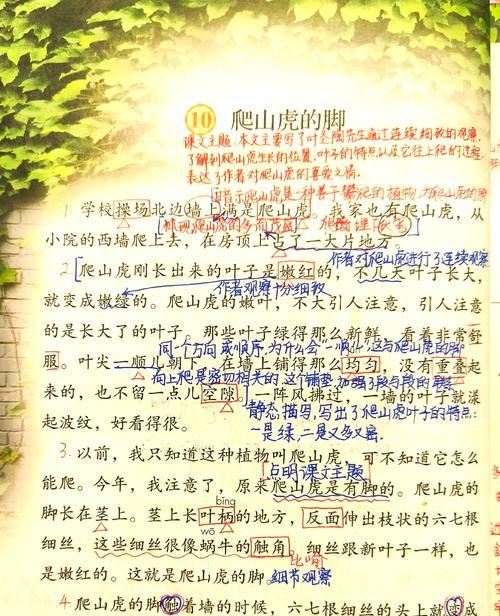 10 爬山虎的脚
课文主题:本文主要写了叶圣陶先生通过连续细致的观察,
了解到爬山虎生长的位置、叶子的特点以及它往上爬的过程,
表达了作者对爬山虎的喜爱之情。
暗示爬山虎是一种善于攀爬的植物,为爬山虎的脚
1. 学校操场北边墙上满是爬山虎。我家也有爬山虎,从
体现爬山虎的多而茂盛
小院的西墙爬上去,在房顶上占了一大片地方。
作者对爬山虎进行了连续观察
2. 爬山虎刚长出来的叶子是嫩红的,不几天叶子长大,
就变成嫩绿的。爬山虎的嫩叶,不大引人注意,引人注意
作者观察十分细致
的是长大了的叶子。那些叶子绿得那么新鲜,看着非常舒
同一个方向或顺序,为什么会"一顺儿",这与爬山虎的脚
服。叶尖一顺儿朝下,在墙上铺得那么均匀,没有重叠起
向上爬是密切相关的,这个铺垫,加强了段与段的联系
来的,也不留一点儿空隙。一阵风拂过,一墙的叶子就漾
静态描写,写出了爬山虎叶子的特点:
起波纹,好看得很。
一是绿,二是又多又密.
3. 以前,我只知道这种植物叫爬山虎,可不知道它怎么
点明课文主题
能爬。今年,我注意了,原来爬山虎是有脚的。爬山虎的
bǐng
脚长在茎上。茎上长叶柄的地方,反面伸出枝状的六七根
wō
细丝,这些细丝很像蜗牛的触角。细丝跟新叶子一样,也
比喻
是嫩红的。这就是爬山虎的脚。细节观察
4. 爬山虎的脚触着墙的时候,六七根细丝的头上就变成